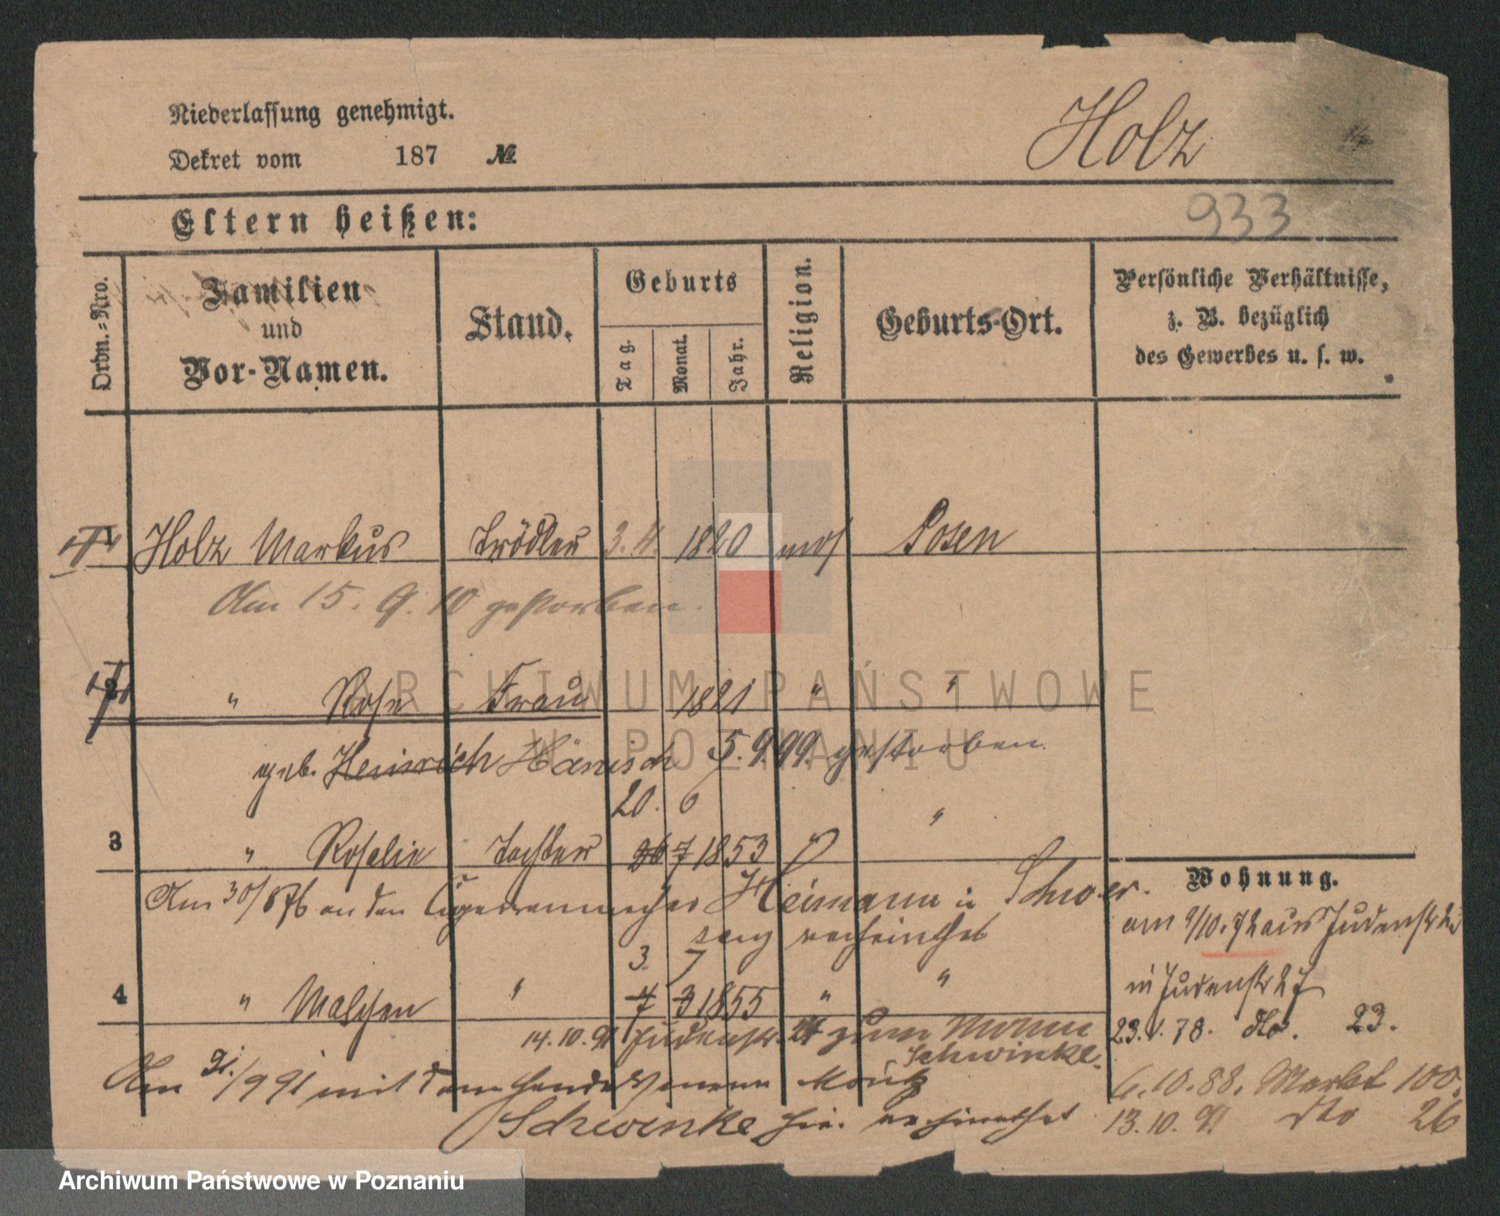 Niederlassung genehmigt.
Dekret vom 187 №
Holz
933
Eltern heißen:
Ordn.-Nro.
Familien
und
Vor-Namen.
Stand.
Geburts
Tag.
Monat.
Jahr.
Religion.
Geburts-Ort.
Persönliche Verhältnisse,
z. B. bezüglich
des Gewerbes u. s. w.
Holz Markus Trödler 3. 4. 1820 mos Posen
Am 15. 9. 10 gestorben.
" Rose Frau 1821 " "
geb. Heinrich Hänisch 5.9.99. gestorben.
20. 6
3 " Rosalie Tochter 26 7 1853 " "
Wohnung.
Am 30/6 76 an den Heimann in
verheirathet
am 1/10.72 aus Judenstr
3. 7
4 " Malchen " 7 3 1855 " "
in Judenstr 27
14.10.91 Judenstr. zum Mann
Schwinke.
23. 1. 78. do. 23.
Am /9 91 mit dem Moritz
6.10.88. Markt 100.
Schwenke hier verheirathet
13.10.91 dto 26
ARCHIWUM PAŃSTWOWE
W POZNANIU
Archiwum Państwowe w Poznaniu